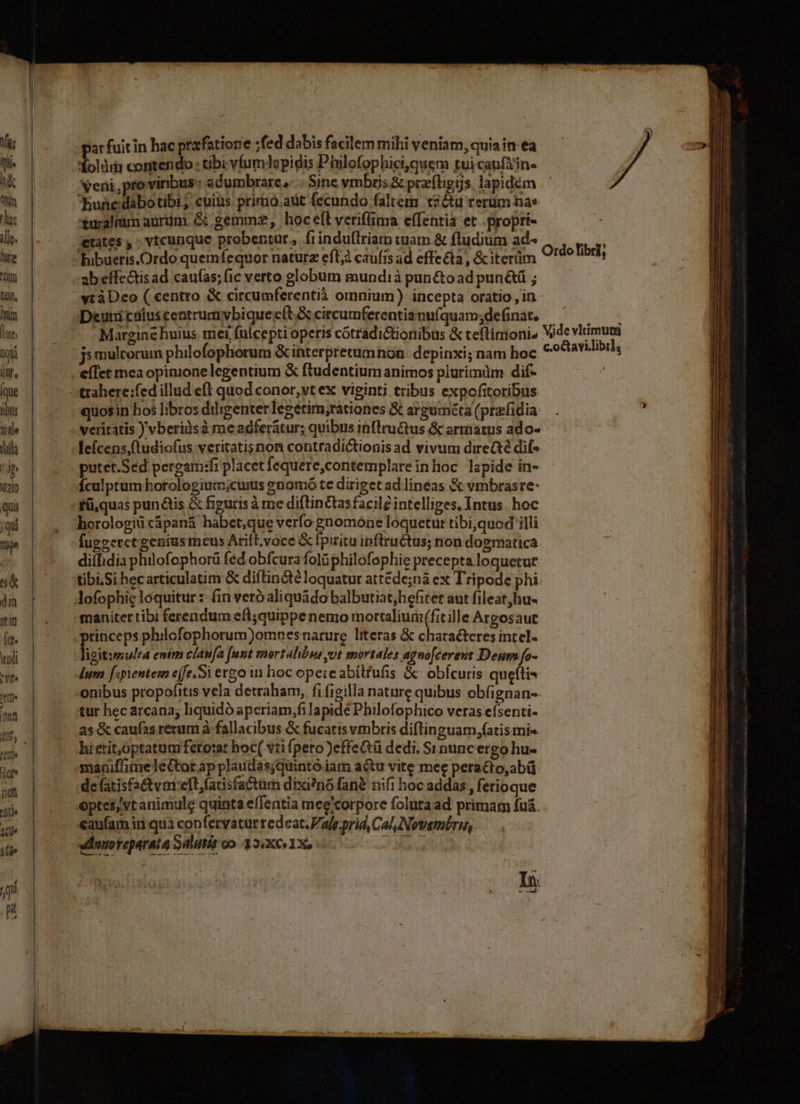 par fuit in hac præfatione ;ſed dabis facilem mihi veniam, quia in ea
ſolùm contendo : tibi vſum lapidis Philoſophici,quem tui cauſà in-
veni, pro viribus adumbrare. Sine vmbris & præſtigijs, lapidem
hunc dabo tibi; cuius primò aut ſecundo ſaltem tactu rerum na-
turalium aurum & gemmæ, hoc eſt veriſſima eſſentia et propri-
etates, vtcunque probentur, ſi induſtriam tuam & ſtudium ad-
hibueris.Ordo quem ſequor naturæ eſt,à cauſis ad effecta, & iterùm
ab effectis ad cauſas; ſic verto globum mundi à puncto ad punctū ;
vt à Deo ( centro & circumferentiâ omnium ) incepta oratio, in
Deum cuius centrum vbique eſt & circumferentia nuſquam;definat.
Ordo libri;
Margine huius mei ſuſcepti operis cōtradictionibus & teſtimoni-
js multorum philoſophorum & interpretum non depinxi; nam hoc
Vide vltimum
c.octavi.libri;
eſſet mea opinione legentium & ſtudentium animos plurimùm diſ-
trahere:ſed illud eſt quod conor,vt ex viginti tribus expoſitoribus
quos in hos libros diligenter legerim,rationes & argumēta (præſidia
veritatis ) vberiùs à me adferātur; quibus inſtructus & armatus ado-
leſcens,ſtudioſus veritatis non contradictionis ad vivum directè diſ-
putet.Sed pergam:ſi placet ſequere,contemplare in hoc lapide in-
ſculptum horologium;cuius gnomō te diriget ad lineas & vmbras re-
rū,quas punctis & figuris à me diſtinctas facilè intelliges. Intus hoc
horologiū cāpanā habet,que verſo gnomone loquetur tibi,quod illi
ſuggeret genius meus Ariſt.voce & ſpiritu inſtructus; non dogmatica
diſſidia philoſophorū ſed obſcura ſolū philoſophie precepta loquetur
tibi.Si hec articulatim & diſtinctè loquatur attēde;nā ex Tripode phi
loſophie loquitur : ſin verò aliquādo balbutiat,heſitet aut ſileat,hu-
maniter tibi ferendum eſt;quippe nemo mortalium(ſit ille Argos aut
princeps philoſophorum)omnes nature literas & characteres intel-
ligit:multa enim clauſa ſunt mortalibus,vt mortales agnoſcerent Deum ſo-
lum ſapientem eſſe.Si ergo in hoc opere abſtruſis & obſcuris queſti-
onibus propoſitis vela detraham, ſi ſigilla nature quibus obſignan-
tur hec arcana; liquidò aperiam,ſi lapidē Philoſophico veras eſsenti-
as & cauſas rerum à fallacibus & fucatis vmbris diſtinguam,ſatis mi-
hi erit,optatum fero:at hoc( vti ſpero )effectū dedi. Si nunc ergo hu-
maniſſime lector ap plaudas;quintò iam actu vite mee peracto,abū
de ſatisfactvm eſt,ſatisfactum dixi?nō ſanè niſi hoc addas , ſerioque
optes,vt animule quinta eſſentia mee corpore ſoluta ad primam ſuā
cauſam in qua conſervatur redeat.Vale.prid, Cal,Novembris,